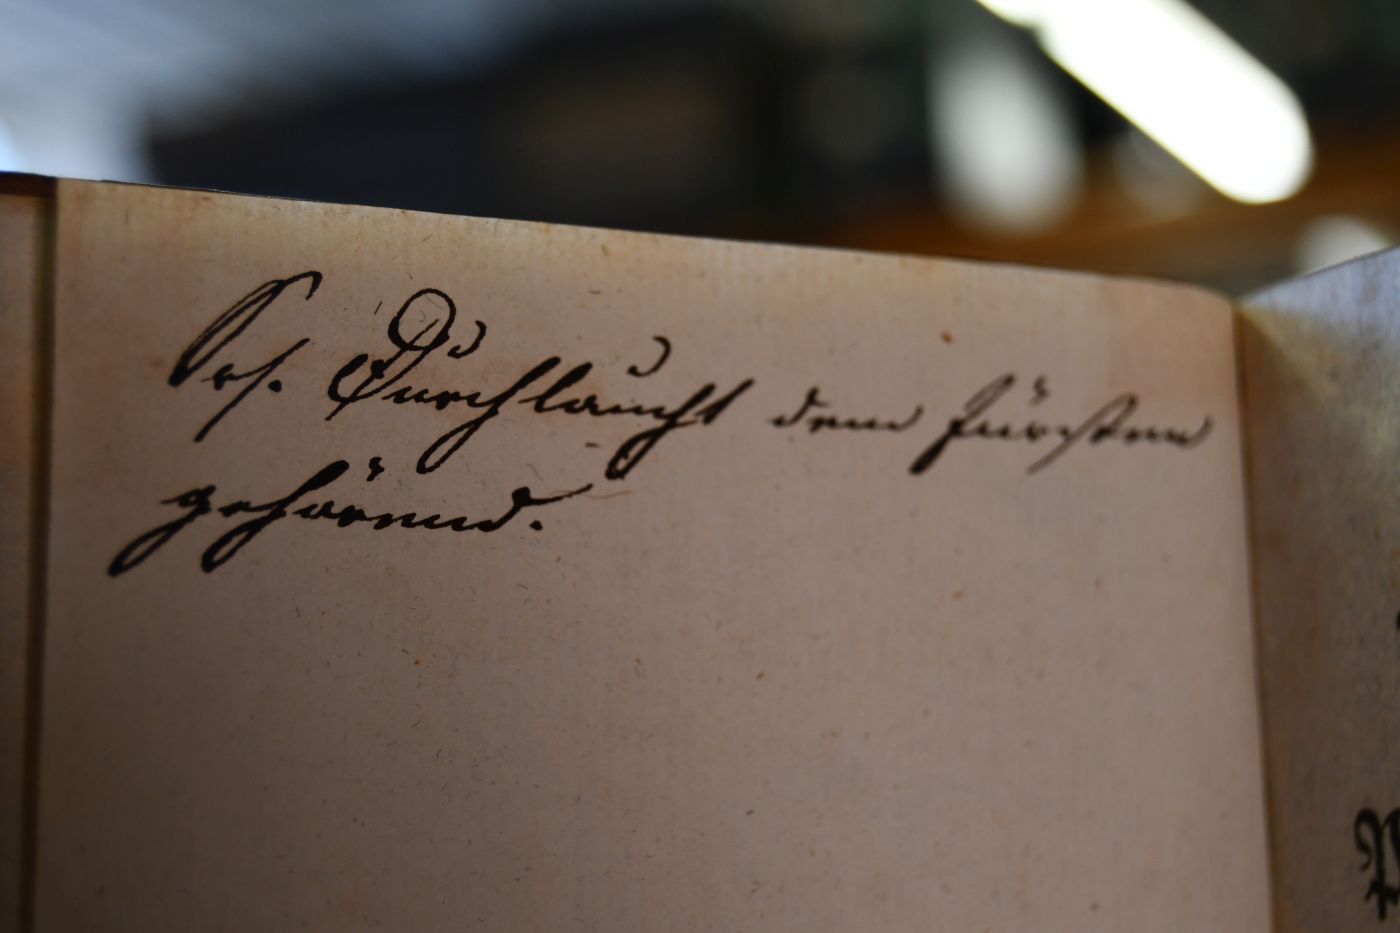 Sr. Durchlaucht dem Fürsten
gehörend.